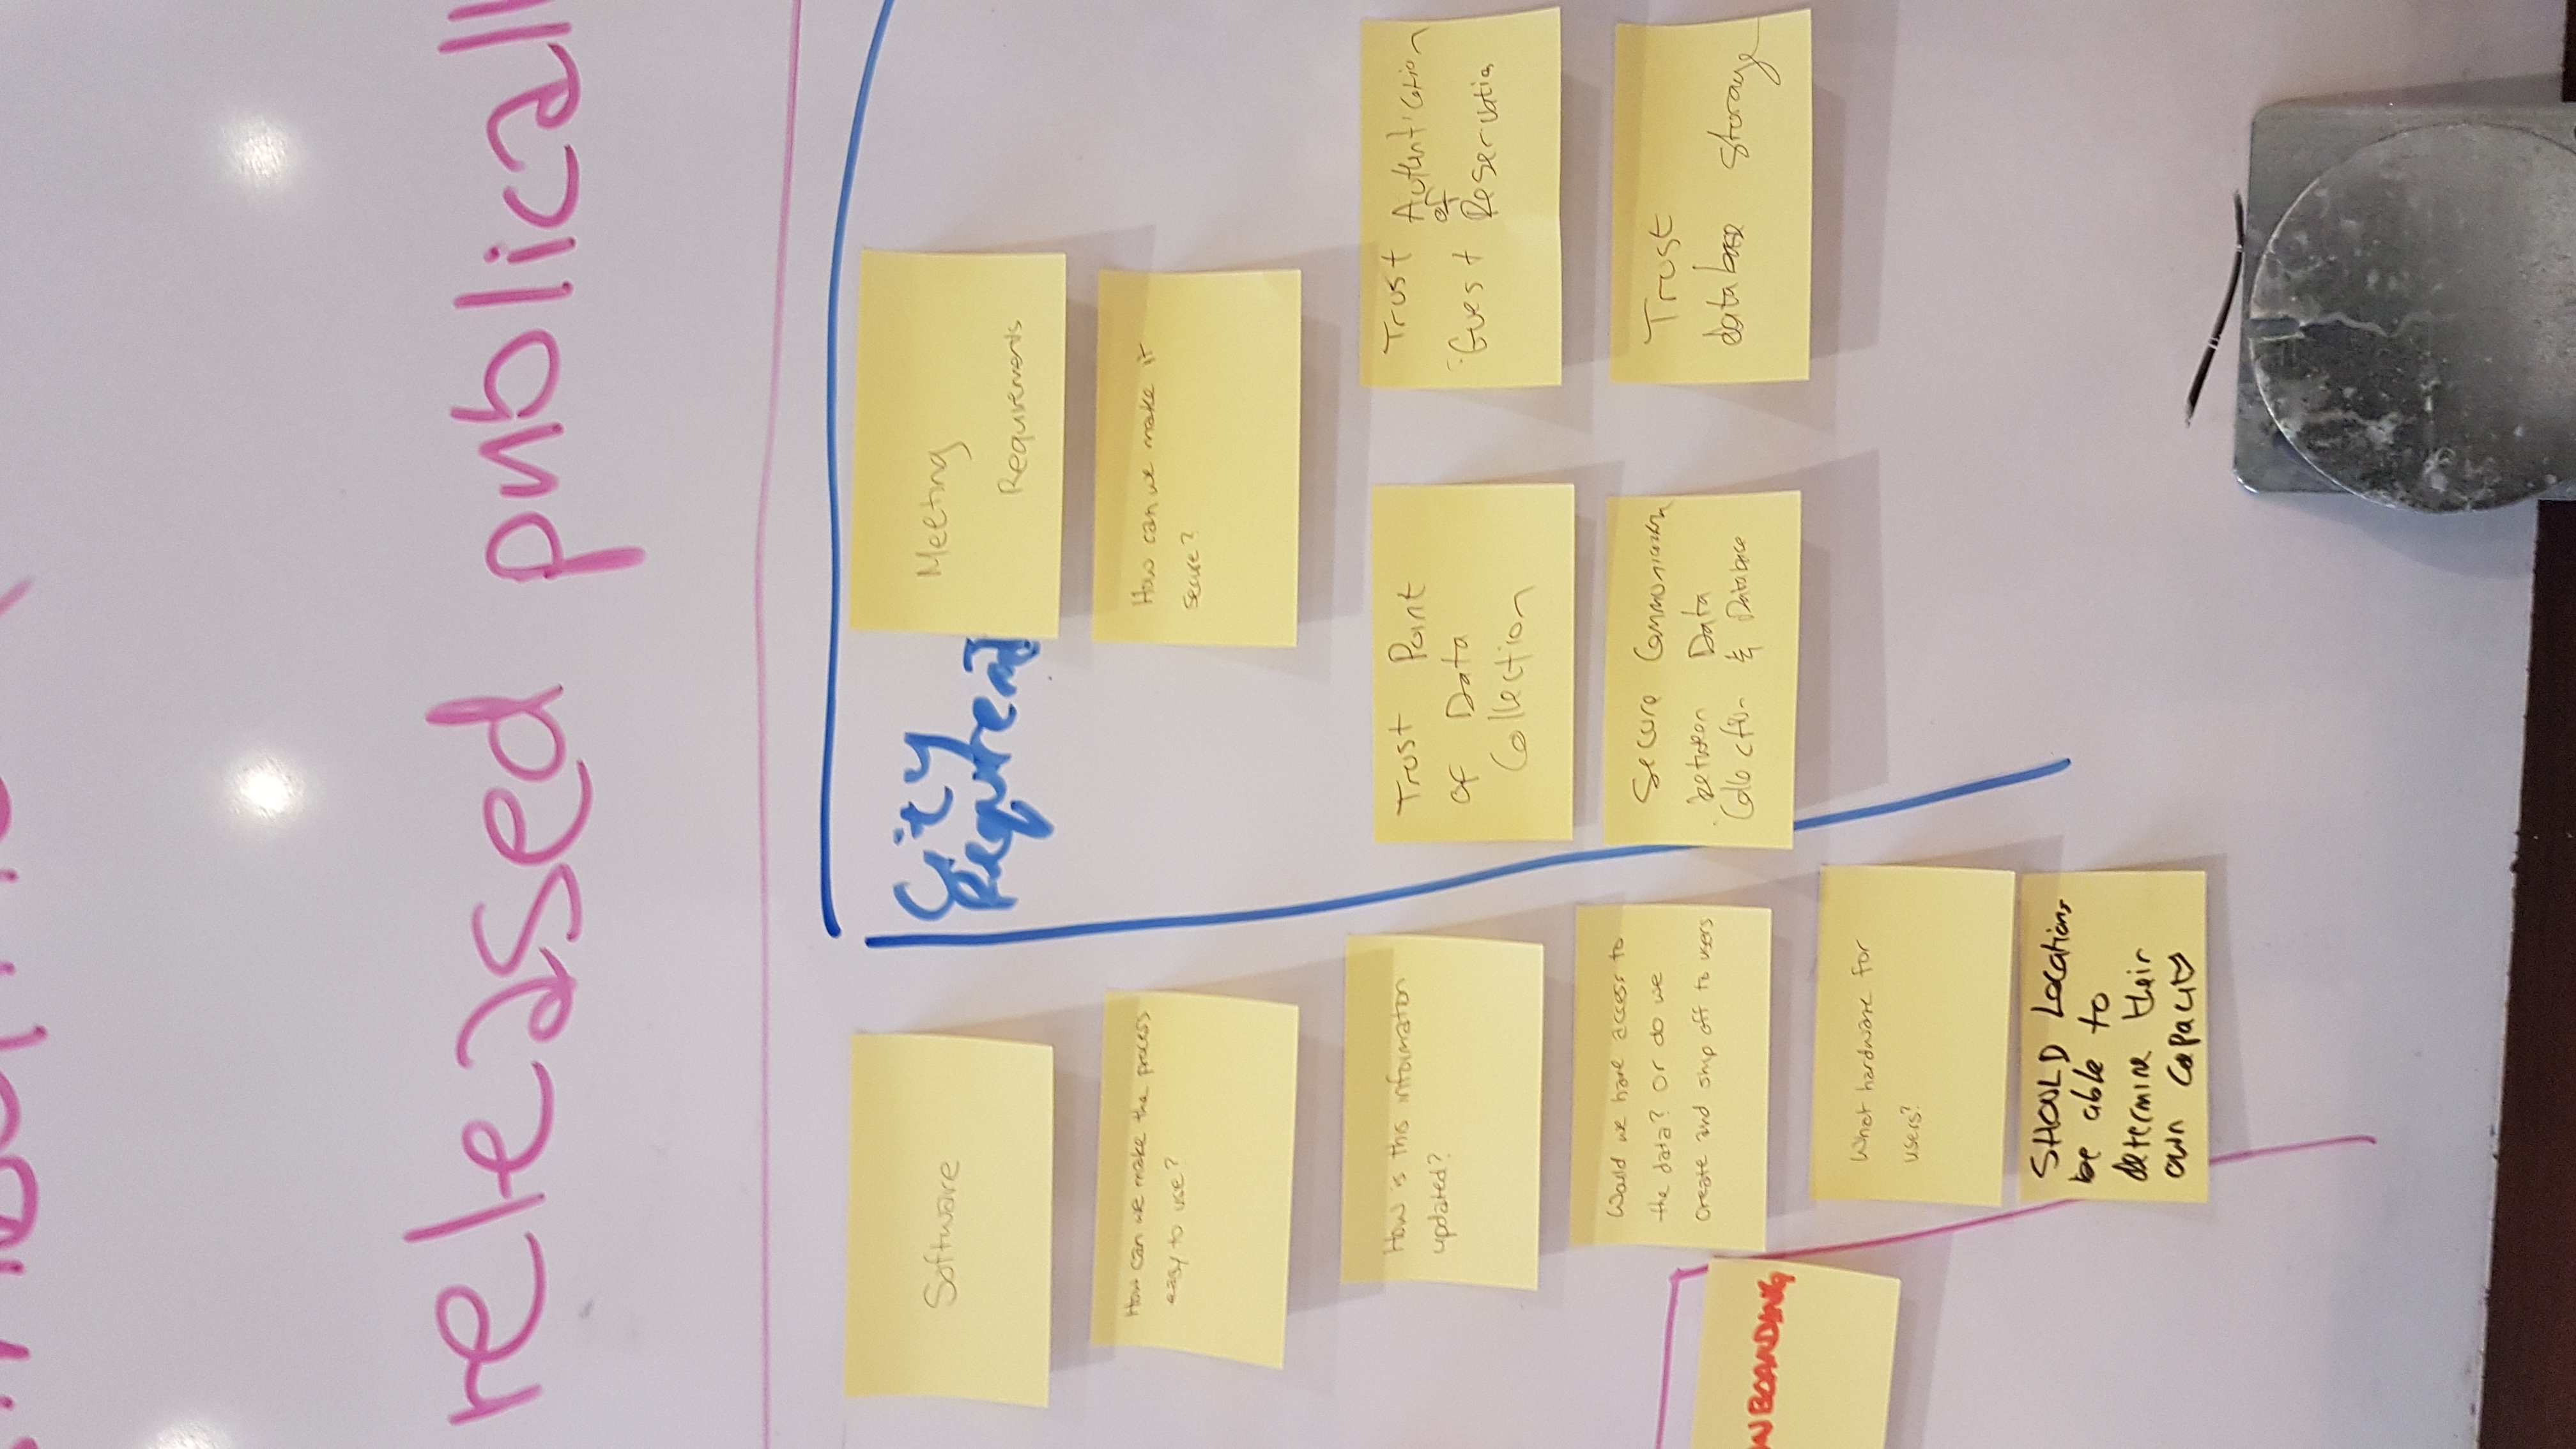 released publicall
Software
How can we make the process
easy to use?
How is this information
updated?
Would we have access to
the data? Or do we
create and ship off to users
NBOARDING
What hardware for
users?
SHOULD Locations
be able to
determine their
own capacity
City
Meeting
Requirements
How can we make it
secure?
Trust Point
of Data
Collection
Trust Authentication
of
Guest Reservation
Secure Communication
between Data
Collection & Database
Trust
database storage